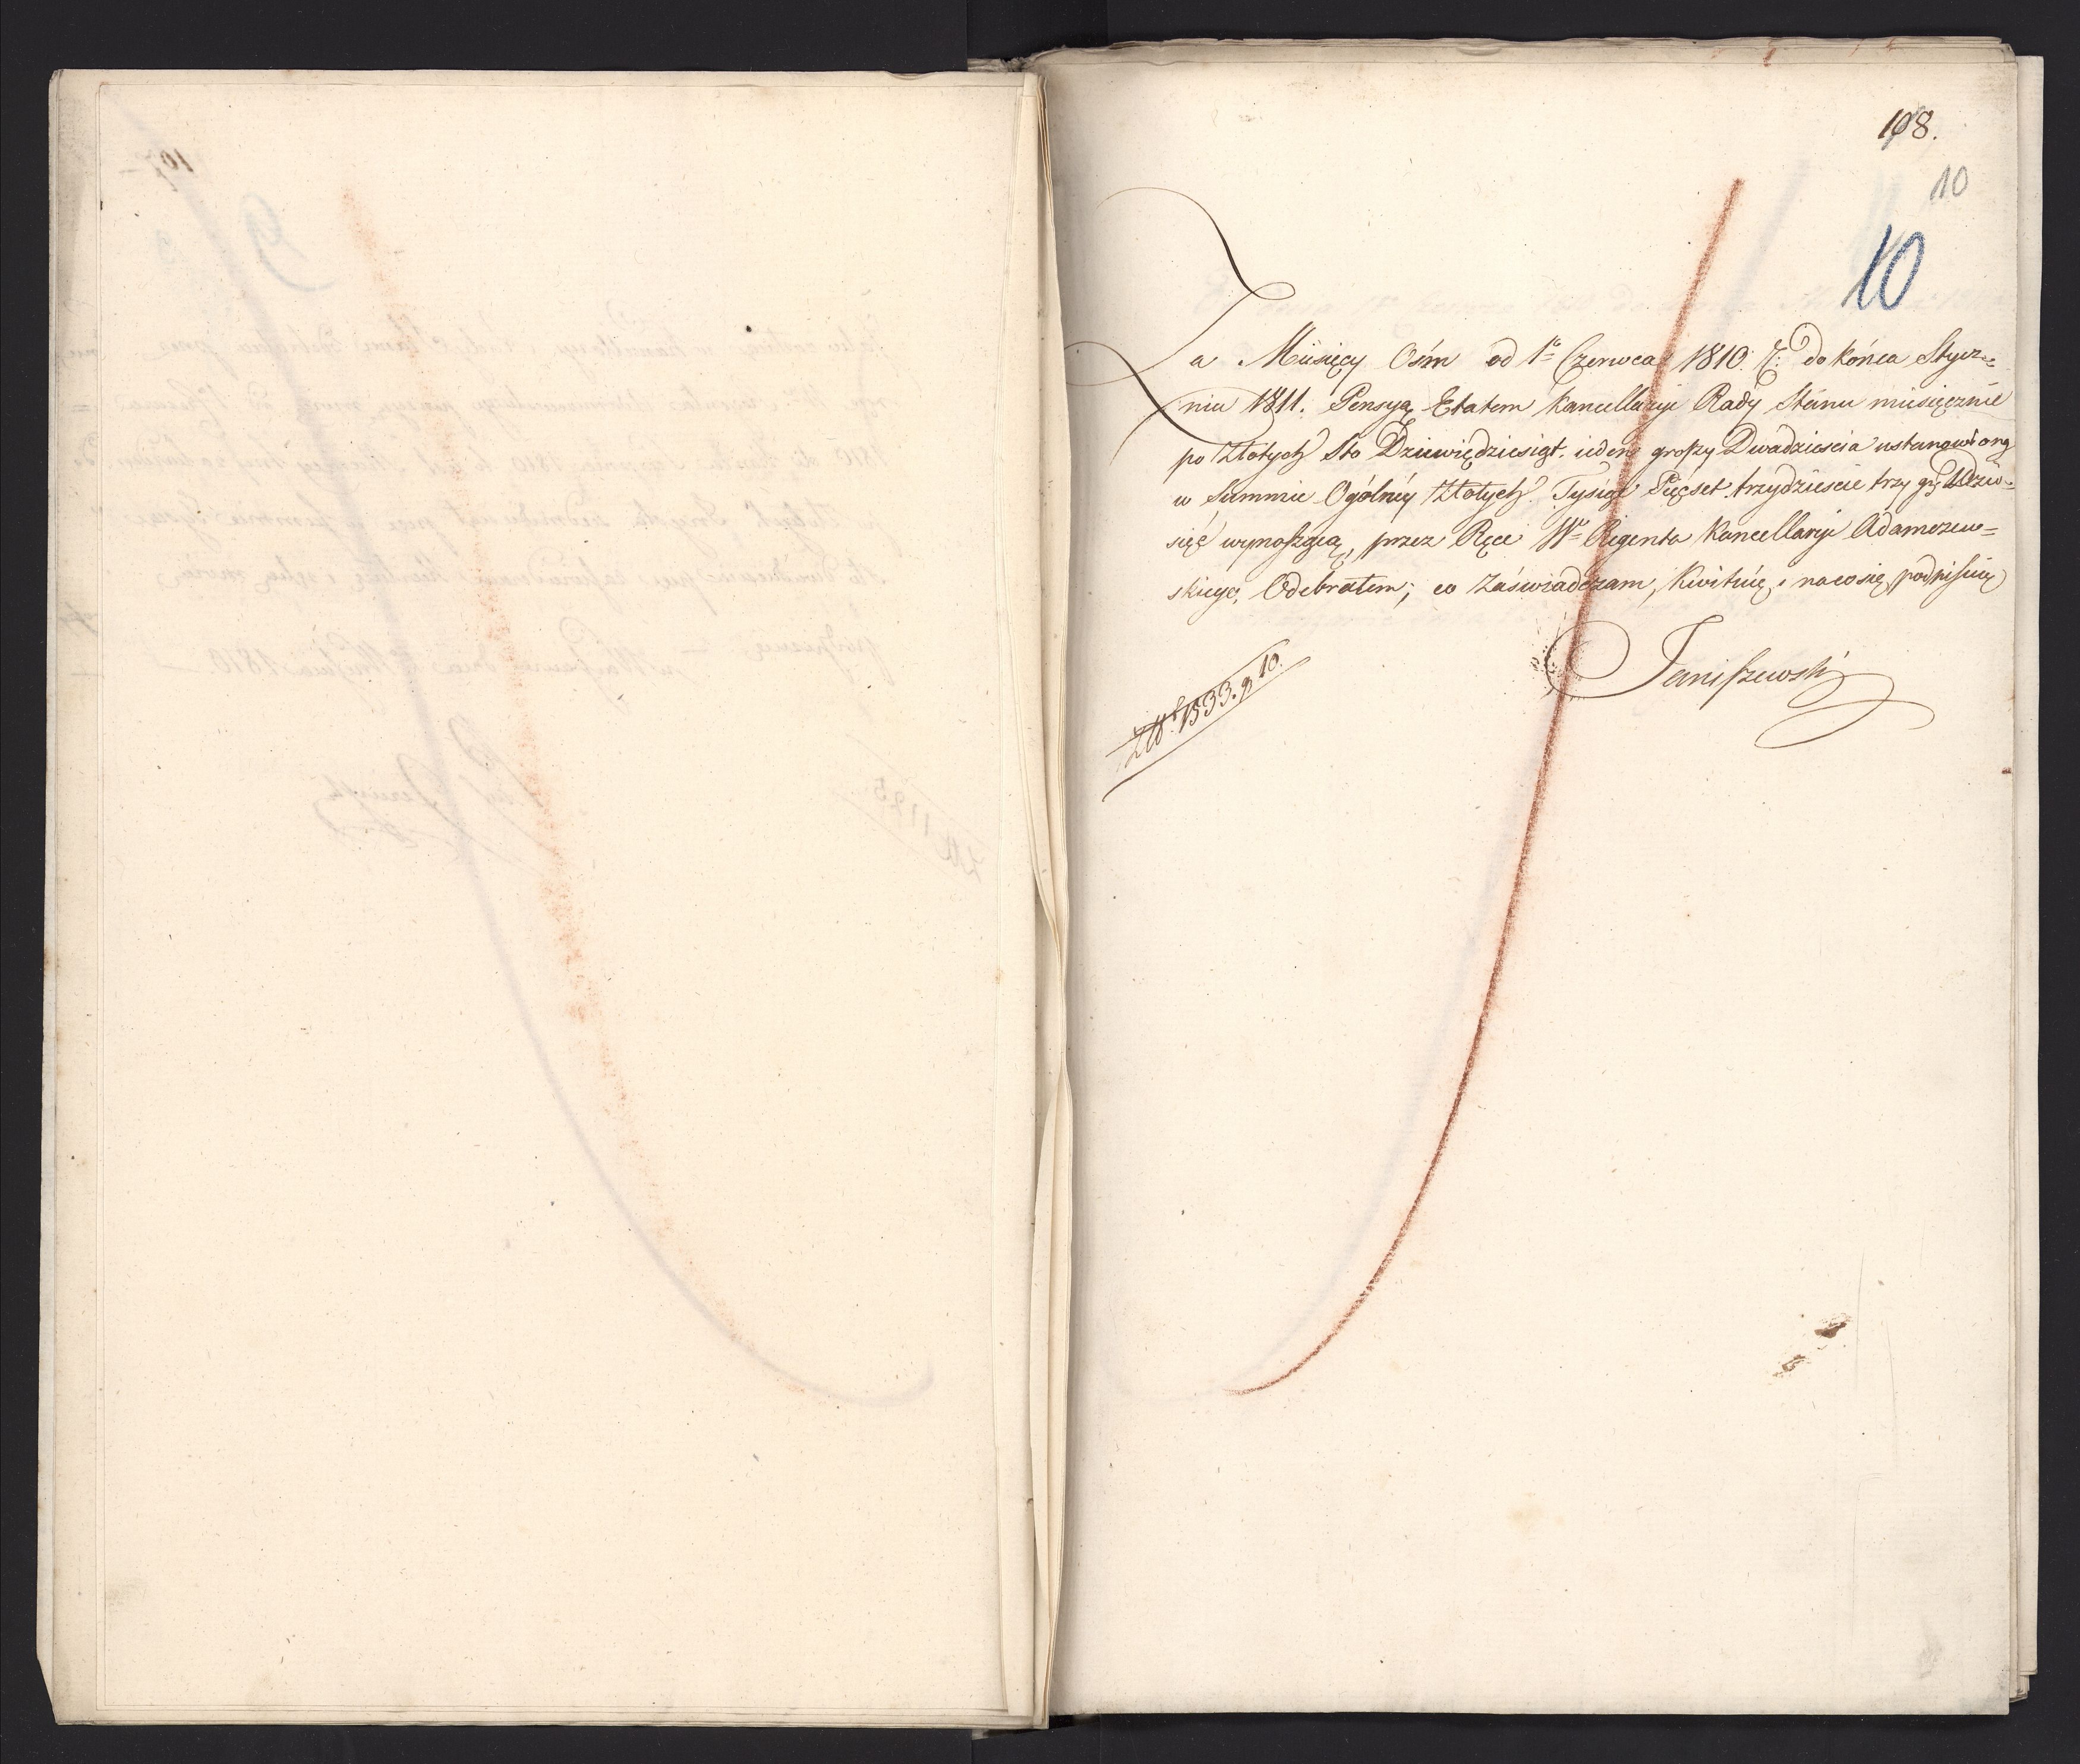 108.
10
10
Za Miesięcy Ośm od 1o Czerwca 1810. R: do końca Stycz=
nia 1811. Pensyą Etatem Kancellaryi Rady Stanu miesięcznie
po Złotych Sto Dziewięćdziesiąt ieden groszy Dwadzieścia ustanowioną
w Summie Ogólney Złotych Tysiąc Pięcset trzydzieście trzy gr: Dzie=
sięć wynoszącą, przez Ręce Wo Regenta Kancellaryi Adamczew=
skiego, Odebrałem; co Zaświadczam, Kwituię i na co się podpisuię
Janiszewski
Złt. 1533. g 10.